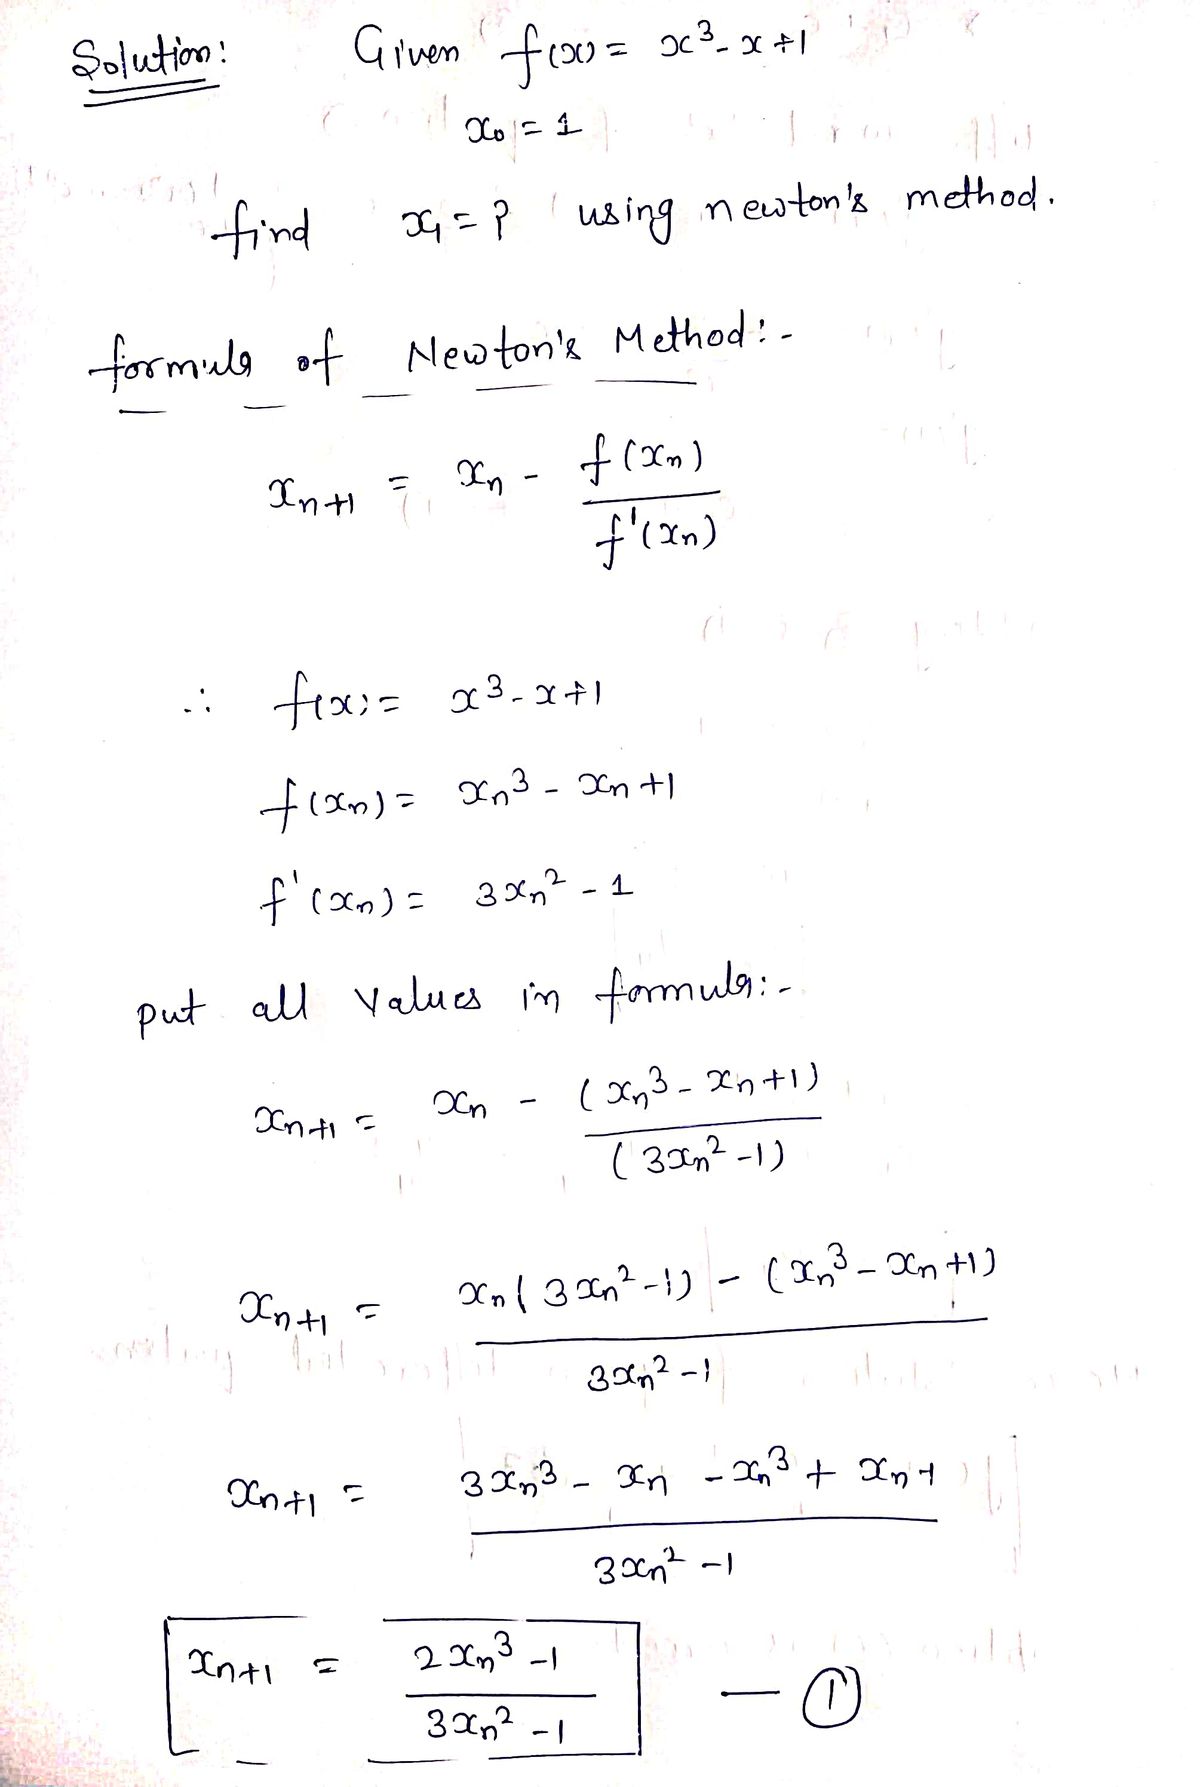 Solution: Given f(x) = x³ - x + 1
x₀ = 1
find x₁ = ? using newton's method.
formula of Newton's Method: -
xₙ₊₁ = xₙ - f(xₙ) / f'(xₙ)
∴ f(x) = x³ - x + 1
f(xₙ) = xₙ³ - xₙ + 1
f'(xₙ) = 3xₙ² - 1
put all values in formula: -
xₙ₊₁ = xₙ - (xₙ³ - xₙ + 1) / (3xₙ² - 1)
xₙ₊₁ = xₙ(3xₙ² - 1) - (xₙ³ - xₙ + 1) / 3xₙ² - 1
xₙ₊₁ = 3xₙ³ - xₙ - xₙ³ + xₙ - 1 / 3xₙ² - 1
xₙ₊₁ = 2xₙ³ - 1 / 3xₙ² - 1 — ①